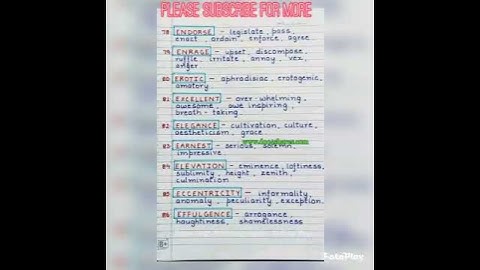 PLEASE SUBSCRIBE FOR MORE
78 ENDORSE - legislate, pass,
enact, ordain, enforce, agree
79 ENRAGE - upset, discompose,
ruffle, irritate, annoy, vex,
anger
80 EROTIC - aphrodisiac, erotogenic,
amatory
81 EXCELLENT - over-whelming,
awesome, awe inspiring,
breath-taking.
82 ELEGANCE - cultivation, culture,
aestheticism, grace
83 EARNEST - serious, solemn,
impressive.
84 ELEVATION - eminence, loftiness,
sublimity, height, zenith,
culmination
85 ECCENTRICITY - informality,
anomaly, peculiarity, exception.
86 EFFULGENCE - arrogance,
haughtiness, shamelessness